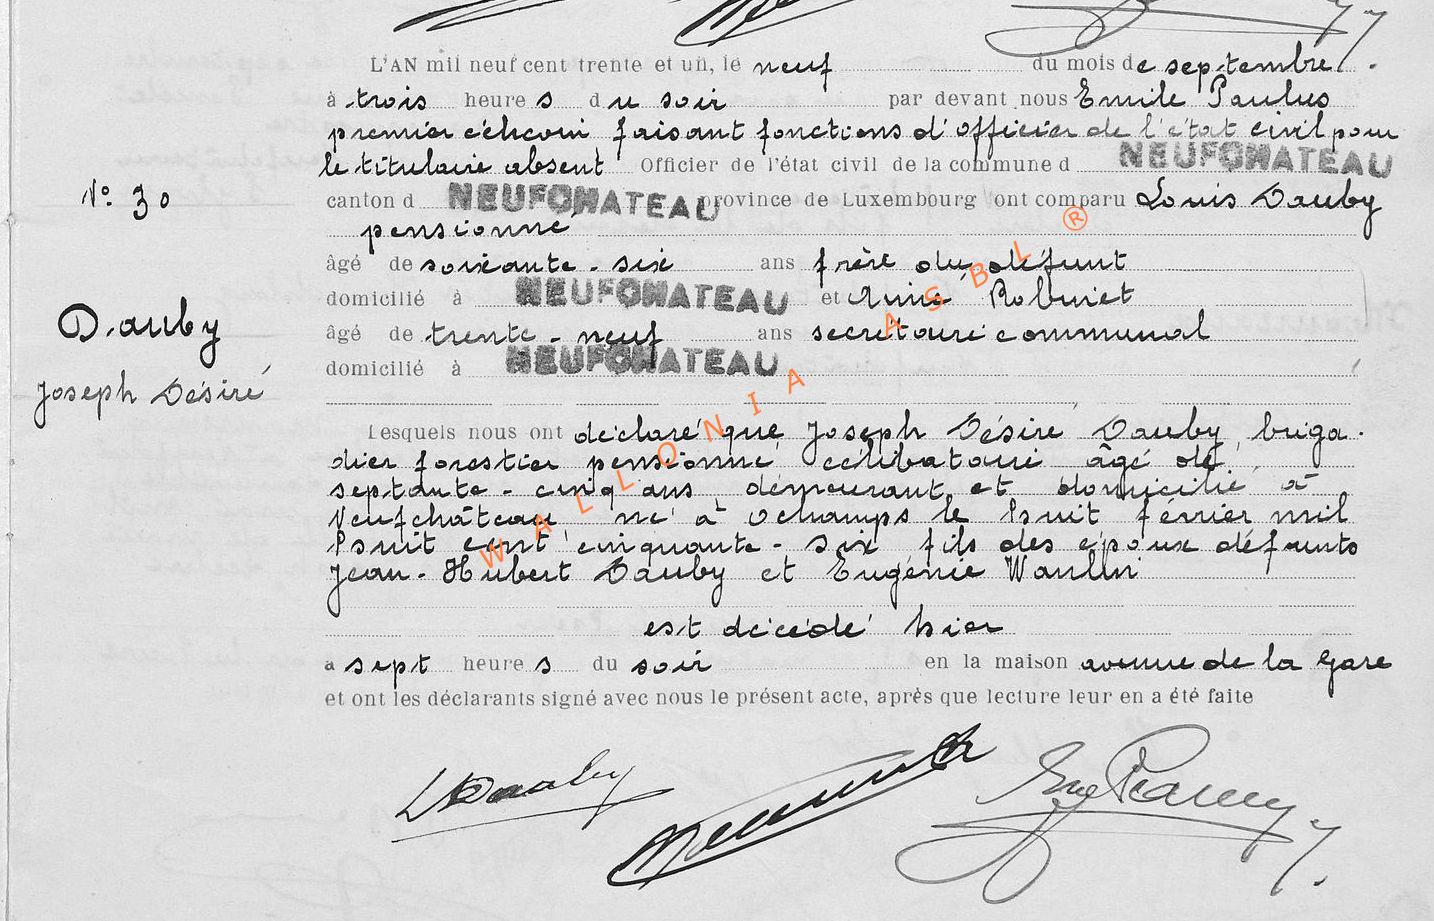 L'AN mil neuf cent trente et un, le neuf du mois de septembre.
à trois heures du soir par devant nous Emile Paulus
premier échevin faisant fonctions d'officier de l'état civil pour
le titulaire absent Officier de l'état civil de la commune d NEUFCHATEAU
N° 30
canton d NEUFCHATEAU province de Luxembourg ont comparu Louis Dauby
pensionné
âgé de soixante-six ans frère du défunt
domicilié à NEUFCHATEAU et Aimé Robinet
Dauby
Joseph Désiré
âgé de trente-neuf ans secrétaire communal
domicilié à NEUFCHATEAU
Lesquels nous ont déclaré que Joseph Désiré Dauby, briga-
dier forestier pensionné célibataire âgé de
septante-cinq ans demeurant et domicilié à
Neufchâteau né à Ochamps le huit février mil
huit cent cinquante-six fils des époux défunts
Jean-Hubert Dauby et Eugénie Waulin
est décédé hier
à sept heures du soir en la maison avenue de la Gare
et ont les déclarants signé avec nous le présent acte, après que lecture leur en a été faite
LDauby
WALLONIA ASBL ®